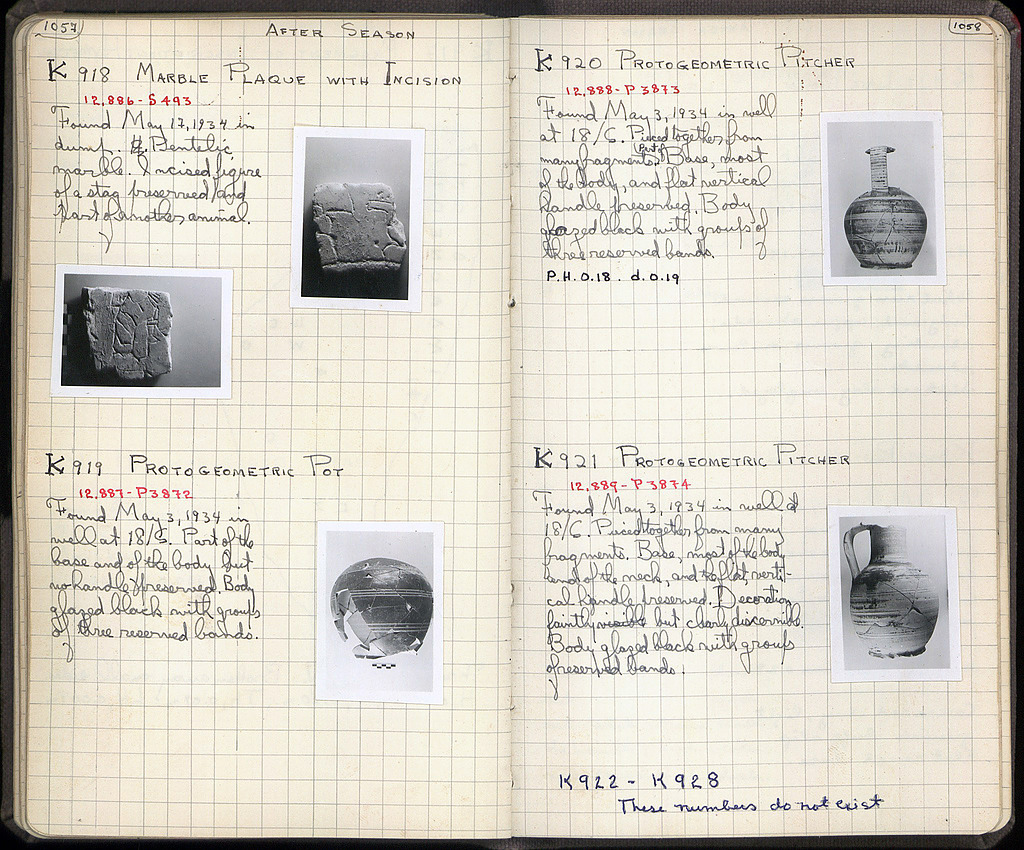 1057
AFTER SEASON
K 918 MARBLE PLAQUE WITH INCISION
12,886 - S 493
Found May 17, 1934 in
dump. Pentelic
marble. Incised figure
of a stag preserved and
part of another animal.
K 919 PROTOGEOMETRIC POT
12,887 - P 3872
Found May 3, 1934 in
well at 18/S. Part of the
base and of the body but
no handle preserved. Body
glazed black with groups
of three reserved bands.
1058
K 920 PROTOGEOMETRIC PITCHER
12,888 - P 3873
Found May 3, 1934 in well
at 18/S. Pieced together from
many fragments. Part of Base, most
of the body, and flat vertical
handle preserved. Body
glazed black with groups of
three reserved bands.
P.H. 0.18. d. 0.19
K 921 PROTOGEOMETRIC PITCHER
12,889 - P 3874
Found May 3, 1934 in well at
18/S. Pieced together from many
fragments. Base, most of the body
and of the neck, and flat verti-
cal handle preserved. Decoration
faintly but clearly discernible.
Body glazed black with groups
of reserved bands.
K922 - K928
These numbers do not exist